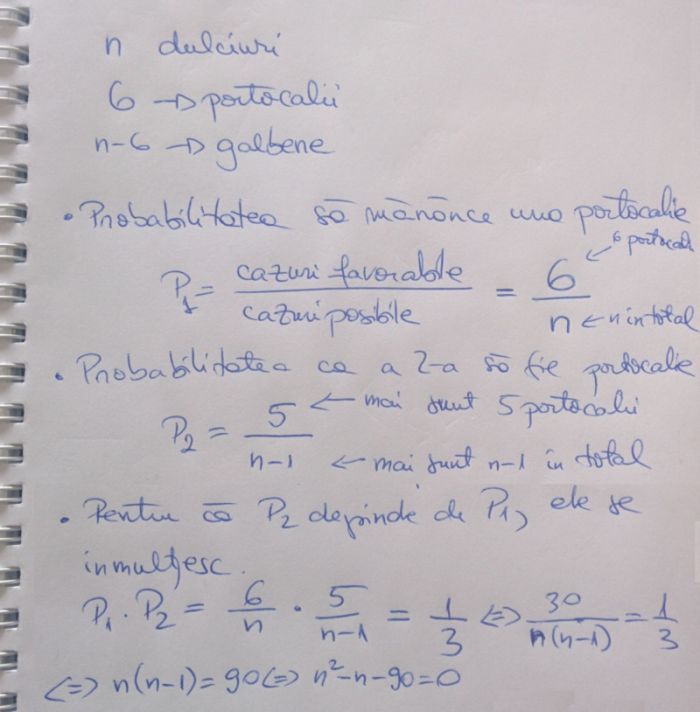 n dulciuri
6 → portocalii
n-6 → galbene
• Probabilitatea să mănânce una portocalie
P₁ = cazuri favorabile / cazuri posibile = 6 / n ← 6 portocalii ← n in total
• Probabilitatea ca a 2-a să fie portocalie
P₂ = 5 / n-1 ← mai sunt 5 portocalii ← mai sunt n-1 în total
• Pentru că P₂ depinde de P₁, ele se
inmulțesc.
P₁ · P₂ = 6/n · 5/n-1 = 1/3 ⇔ 30/n(n-1) = 1/3
⇔ n(n-1) = 90 ⇔ n²-n-90=0